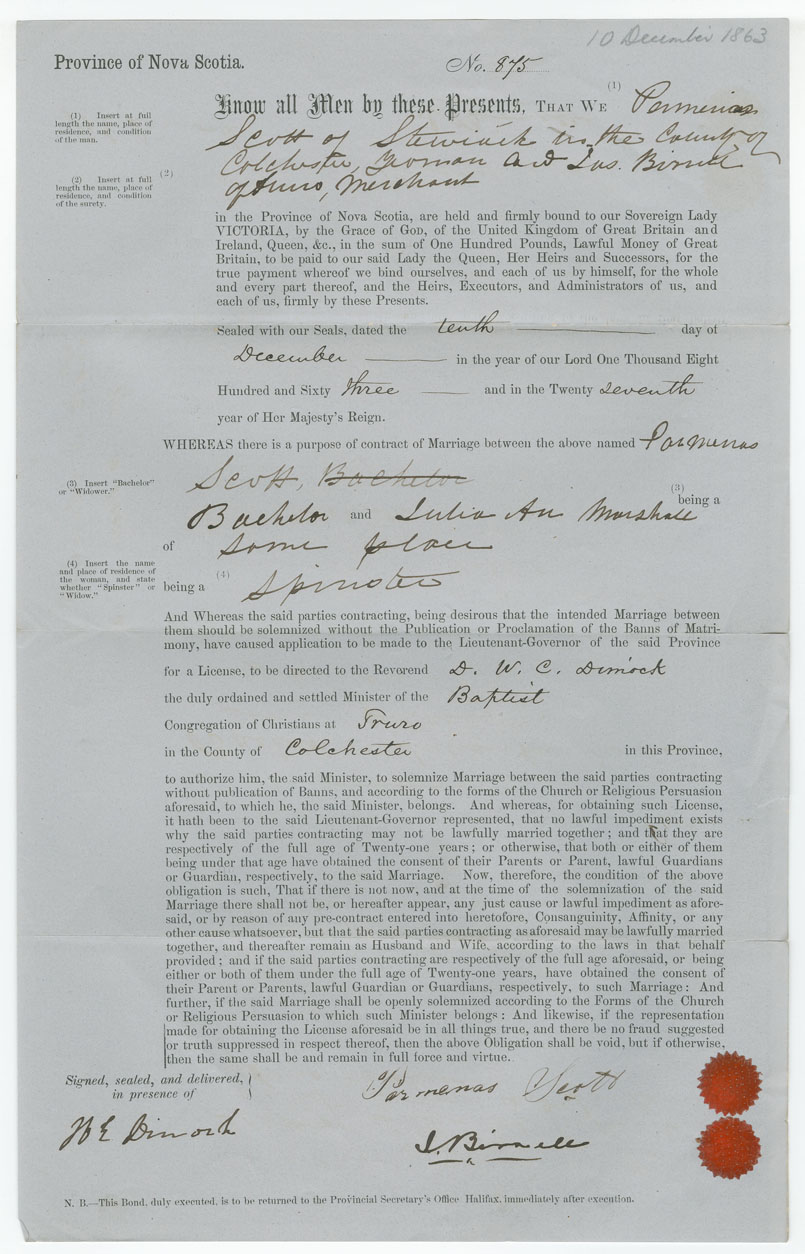 10 December 1863
Province of Nova Scotia.
No. 875
Know all Men by these Presents, THAT WE (1) Parmenas
Scott of Stewiack in the County of
Colchester, Yeoman and Jas. Birrell
of Truro, Merchant
(1) Insert at full
length the name, place of
residence, and condition
of the man.
(2) Insert at full (2)
length the name, place of
residence, and condition
of the surety.
in the Province of Nova Scotia, are held and firmly bound to our Sovereign Lady
VICTORIA, by the Grace of GOD, of the United Kingdom of Great Britain and
Ireland, Queen, &c., in the sum of One Hundred Pounds, Lawful Money of Great
Britain, to be paid to our said Lady the Queen, Her Heirs and Successors, for the
true payment whereof we bind ourselves, and each of us by himself, for the whole
and every part thereof, and the Heirs, Executors, and Administrators of us, and
each of us, firmly by these Presents.
Sealed with our Seals, dated the tenth day of
December in the year of our Lord One Thousand Eight
Hundred and Sixty three and in the Twenty seventh
year of Her Majesty's Reign.
WHEREAS there is a purpose of contract of Marriage between the above named Parmenas
Scott, Bachelor
(3) Insert "Bachelor"
or "Widower."
(3)
being a
Bachelor and Julia An Marshall
of same place
(4) Insert the name
and place of residence of
the woman, and state
whether "Spinster" or
"Widow."
being a (4) Spinster
And Whereas the said parties contracting, being desirous that the intended Marriage between
them should be solemnized without the Publication or Proclamation of the Banns of Matri-
mony, have caused application to be made to the Lieutenant-Governor of the said Province
for a License, to be directed to the Reverend D. W. C. Dimock
the duly ordained and settled Minister of the Baptist
Congregation of Christians at Truro
in the County of Colchester in this Province,
to authorize him, the said Minister, to solemnize Marriage between the said parties contracting
without publication of Banns, and according to the forms of the Church or Religious Persuasion
aforesaid, to which he, the said Minister, belongs. And whereas, for obtaining such License,
it hath been to the said Lieutenant-Governor represented, that no lawful impediment exists
why the said parties contracting may not be lawfully married together; and that they are
respectively of the full age of Twenty-one years; or otherwise, that both or either of them
being under that age have obtained the consent of their Parents or Parent, lawful Guardians
or Guardian, respectively, to the said Marriage. Now, therefore, the condition of the above
obligation is such, That if there is not now, and at the time of the solemnization of the said
Marriage there shall not be, or hereafter appear, any just cause or lawful impediment as afore-
said, or by reason of any pre-contract entered into heretofore, Consanguinity, Affinity, or any
other cause whatsoever, but that the said parties contracting as aforesaid may be lawfully married
together, and thereafter remain as Husband and Wife, according to the laws in that behalf
provided; and if the said parties contracting are respectively of the full age aforesaid, or being
either or both of them under the full age of Twenty-one years, have obtained the consent of
their Parent or Parents, lawful Guardian or Guardians, respectively, to such Marriage: And
further, if the said Marriage shall be openly solemnized according to the Forms of the Church
or Religious Persuasion to which such Minister belongs: And likewise, if the representation
made for obtaining the License aforesaid be in all things true, and there be no fraud suggested
or truth suppressed in respect thereof, then the above Obligation shall be void, but if otherwise,
then the same shall be and remain in full force and virtue.
Signed, sealed, and delivered,
in presence of
Parmenas Scott
Dimock
J. Birrell
N. B.—This Bond, duly executed, is to be returned to the Provincial Secretary's Office Halifax, immediately after execution.